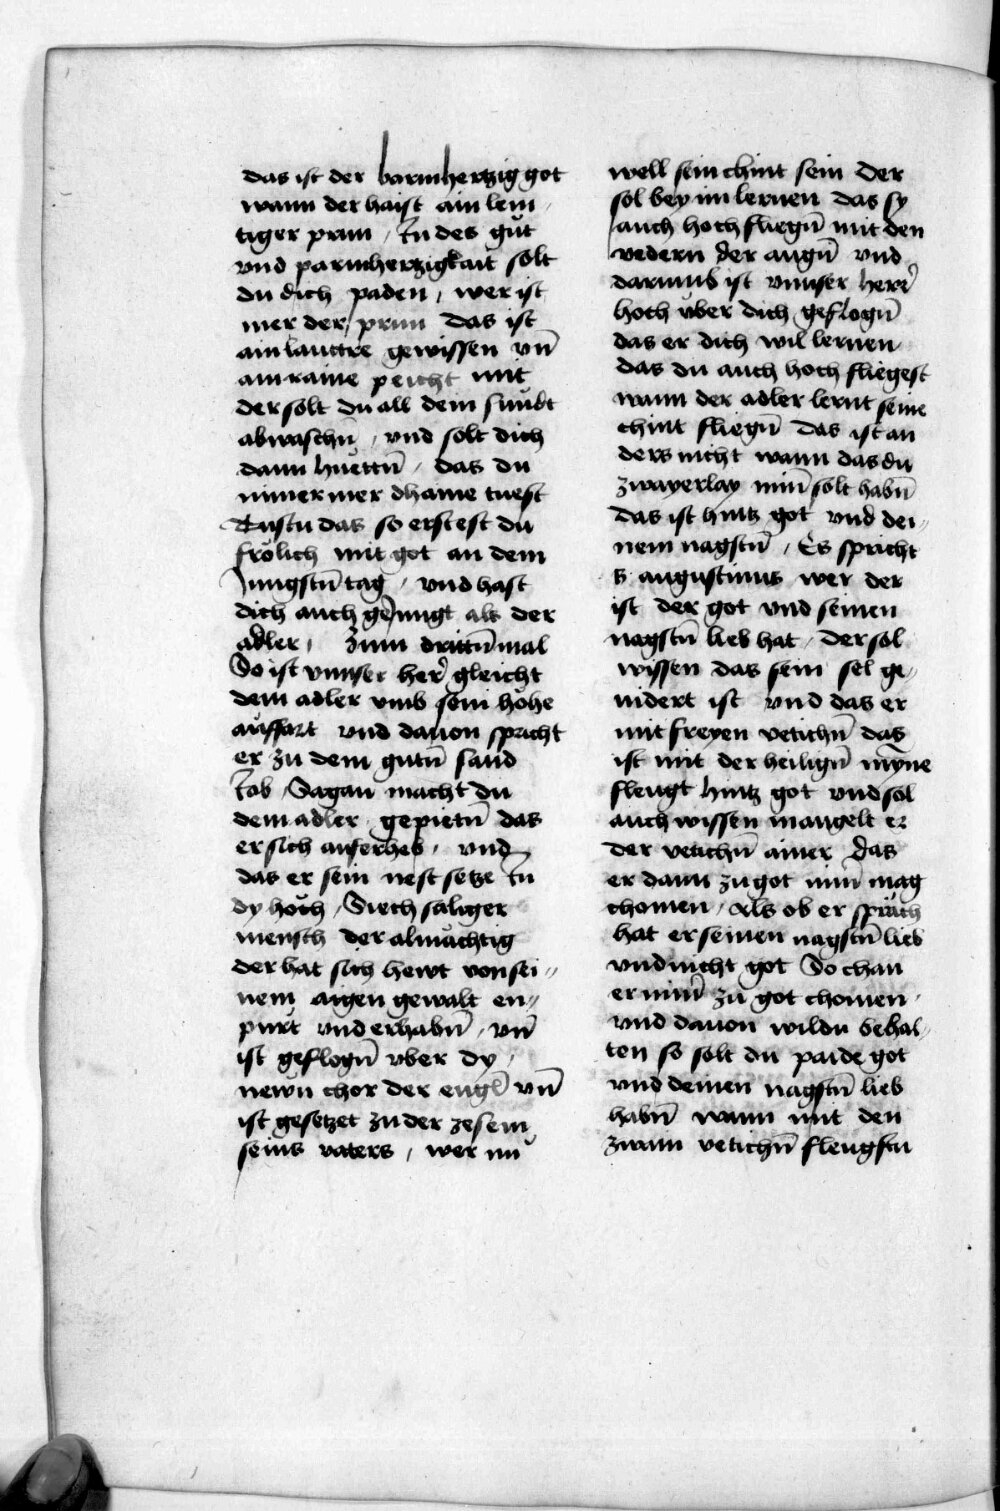 das ist der barmhertzig got
wann der haist ain lem
tiger prun / In des gůt
vnd parmhertzigkait solt
du dich paden / wer ist
mer der prun das ist
ain lauttre gewissen vn̄
ain raine peicht mit
der solt du all dein sundt
abwaschn̄ / vnd solt dich
dann huettn̄ / das du
nimermer dhaine tuest
Tustu das so erstest du
frölich mit got an dem
Jungstn̄ tag / vnd hast
dich auch geJungt als der
adler / Zum drittn̄ mal
So ist vnnser her̄ gleicht
dem adler vmb sein hohe
auffart vnd dauon spricht
er zu dem gutn̄ sand
Iob / Sagan macht du
dem adler gepietn̄ das
er sich auferheb / vnd
das er sein nest setze In
dy hoch / Siech säliger
mensch der almächtig
der hat sich hewt von sei〃
nem aigen gewalt en〃
purt vnd erhabn̄ / vn̄
ist geflogn̄ vber dy /
newn chor der engl̄ vn̄
ist gesetzet zu der zesem
seins vaters / wer nu
well sein chint sein der
sol bey im lernen das sy
auch hoch fliegn̄ mit den
vedern der augn̄ vnd
darumb ist vnnser herr̄
hoch vber dich geflogn̄
das er dich wil lernen
das du auch hoch fliegest
wann der adler lernt seine
chint fliegn̄ das ist an
ders nicht wann das du
zwayerlay min̄ solt habn̄
das ist hintz got vnd dei〃
nem nagstn̄ / Es spricht
s augustinus wer der
ist der got vnd seinen
nagstn̄ lieb hat / der sol
wissen das sein sel ge〃
nidert ist vnd das er
mit freyen vetichn̄ das
ist mit der heilign̄ myne
fleugt hintz got vnd sol
auch wissen mangelt er
der vetichn̄ ainer das
er dann zu got nim̄ mag
chomen / Als ob er spräch
hat er seinen nagstn̄ lieb
vnd nicht got So chan
er nim̄ zu got chomen /
vnd dauon wildu behal〃
ten so solt du paide got
vnd deinen nagstn̄ lieb
habn̄ wann mit den
zwain vetichn̄ fleugstu